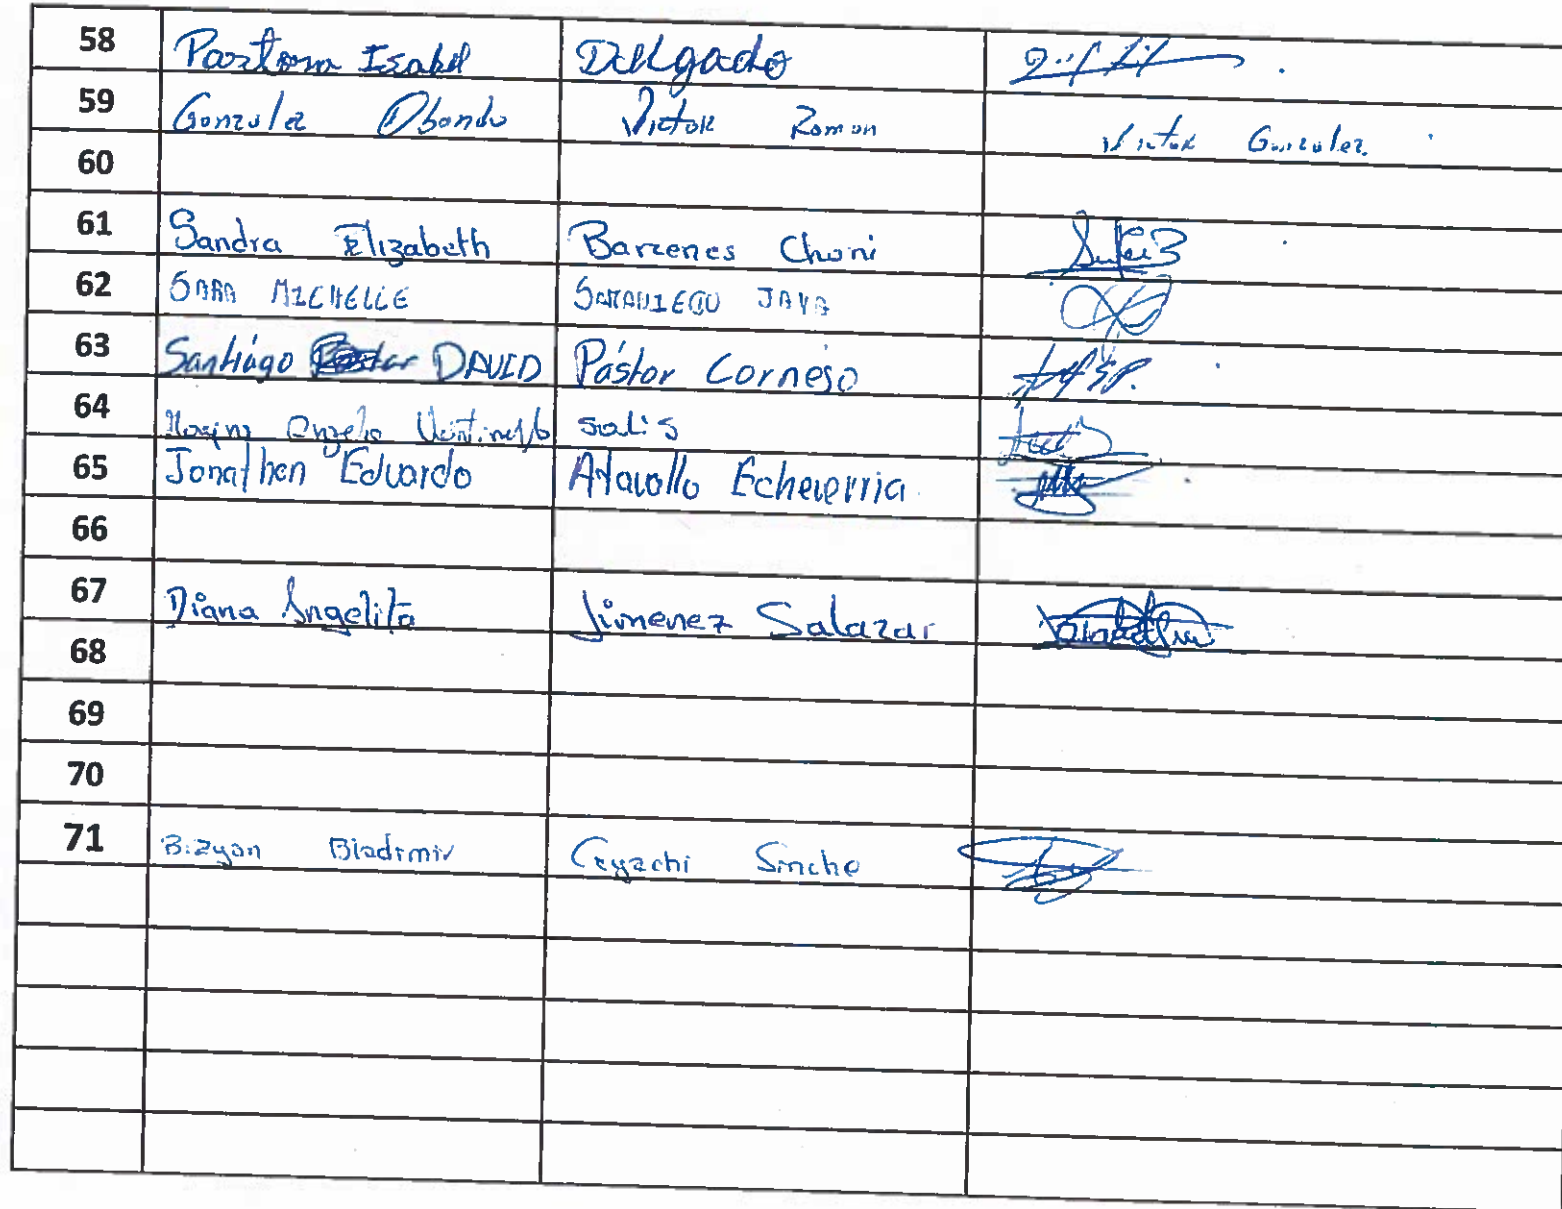 58 Pastora Isabel Delgado
59 Gonzalez Obando Victor Roman Victor Gonzalez
60
61 Sandra Elizabeth Barcenes Choni
62 SARA MICHELLE SAMANIEGO JAYA
63 Santiago DAVID Pástor Cornejo
64 solis
65 Jonathan Eduardo Atavallo Echeverria
66
67 Diana Angelita Jimenez Salazar
68
69
70
71 Bizyan Bladimir Sincho